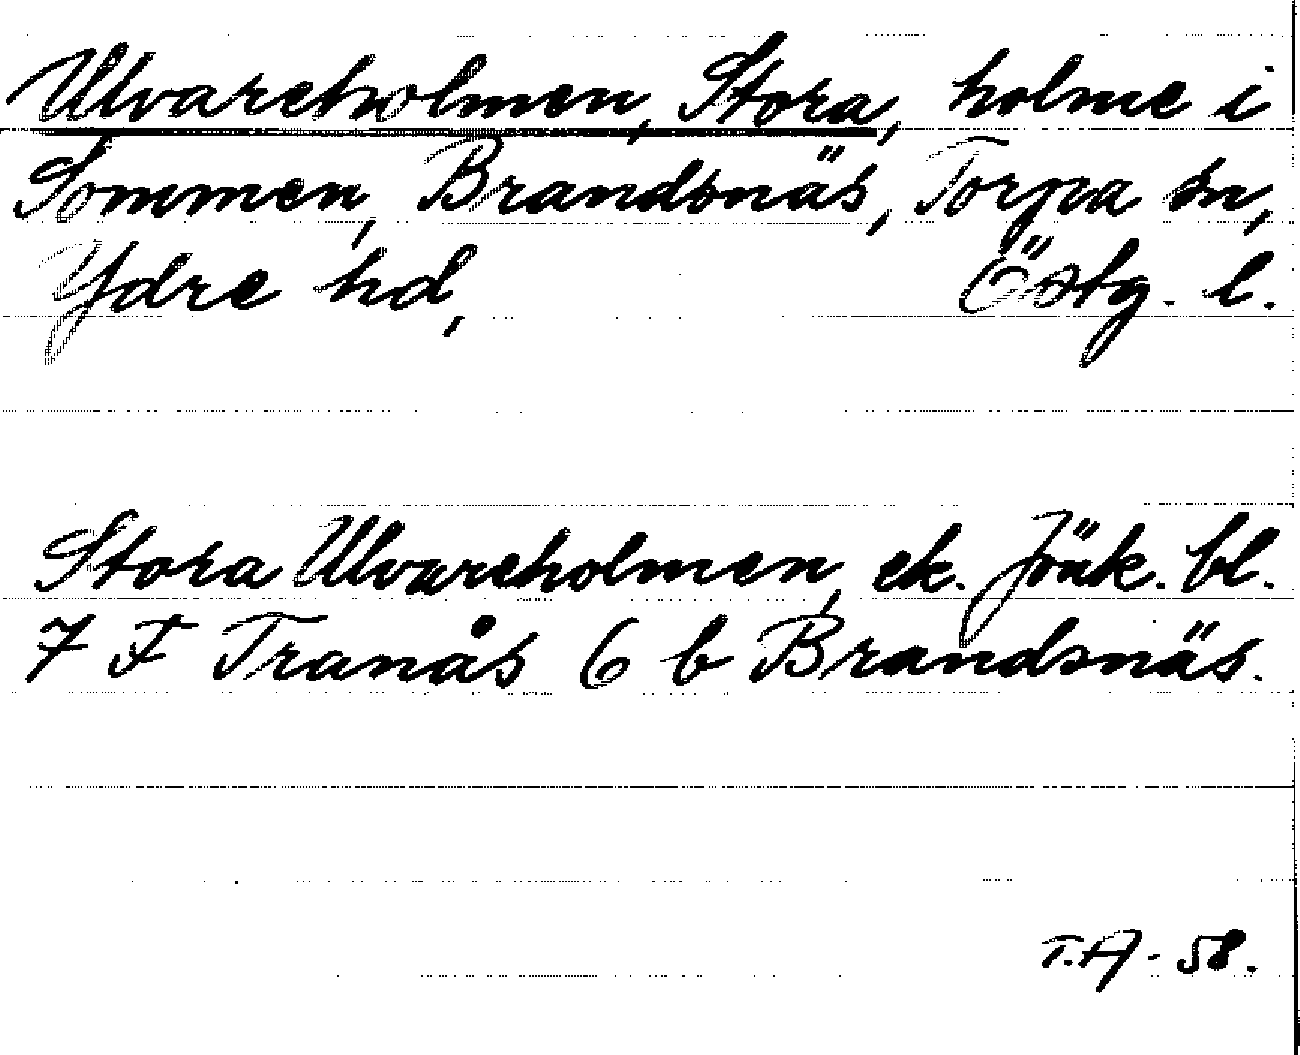 Ulvareholmen, Stora, holme i
Sommen, Brandsnäs, Torpa sn,
Ydre hd, Östg. l.
Stora Ulvareholmen, ek. Jönk. bl.
7 F Tranås 6 b Brandsnäs.
T.A - 58.